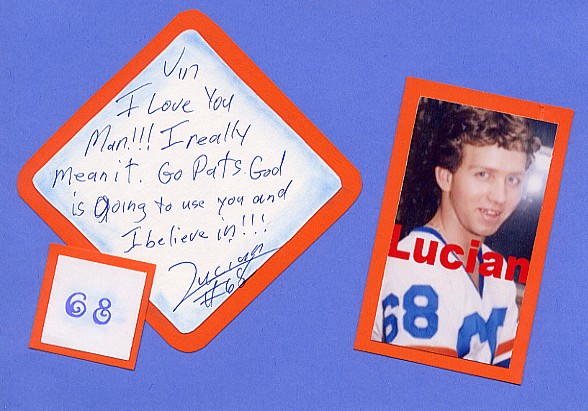 Vin
I Love You
Man!!! I really
mean it. Go Pats. God
is going to use you and
I believe in!!!
Lucian
#68
68
Lucian
68